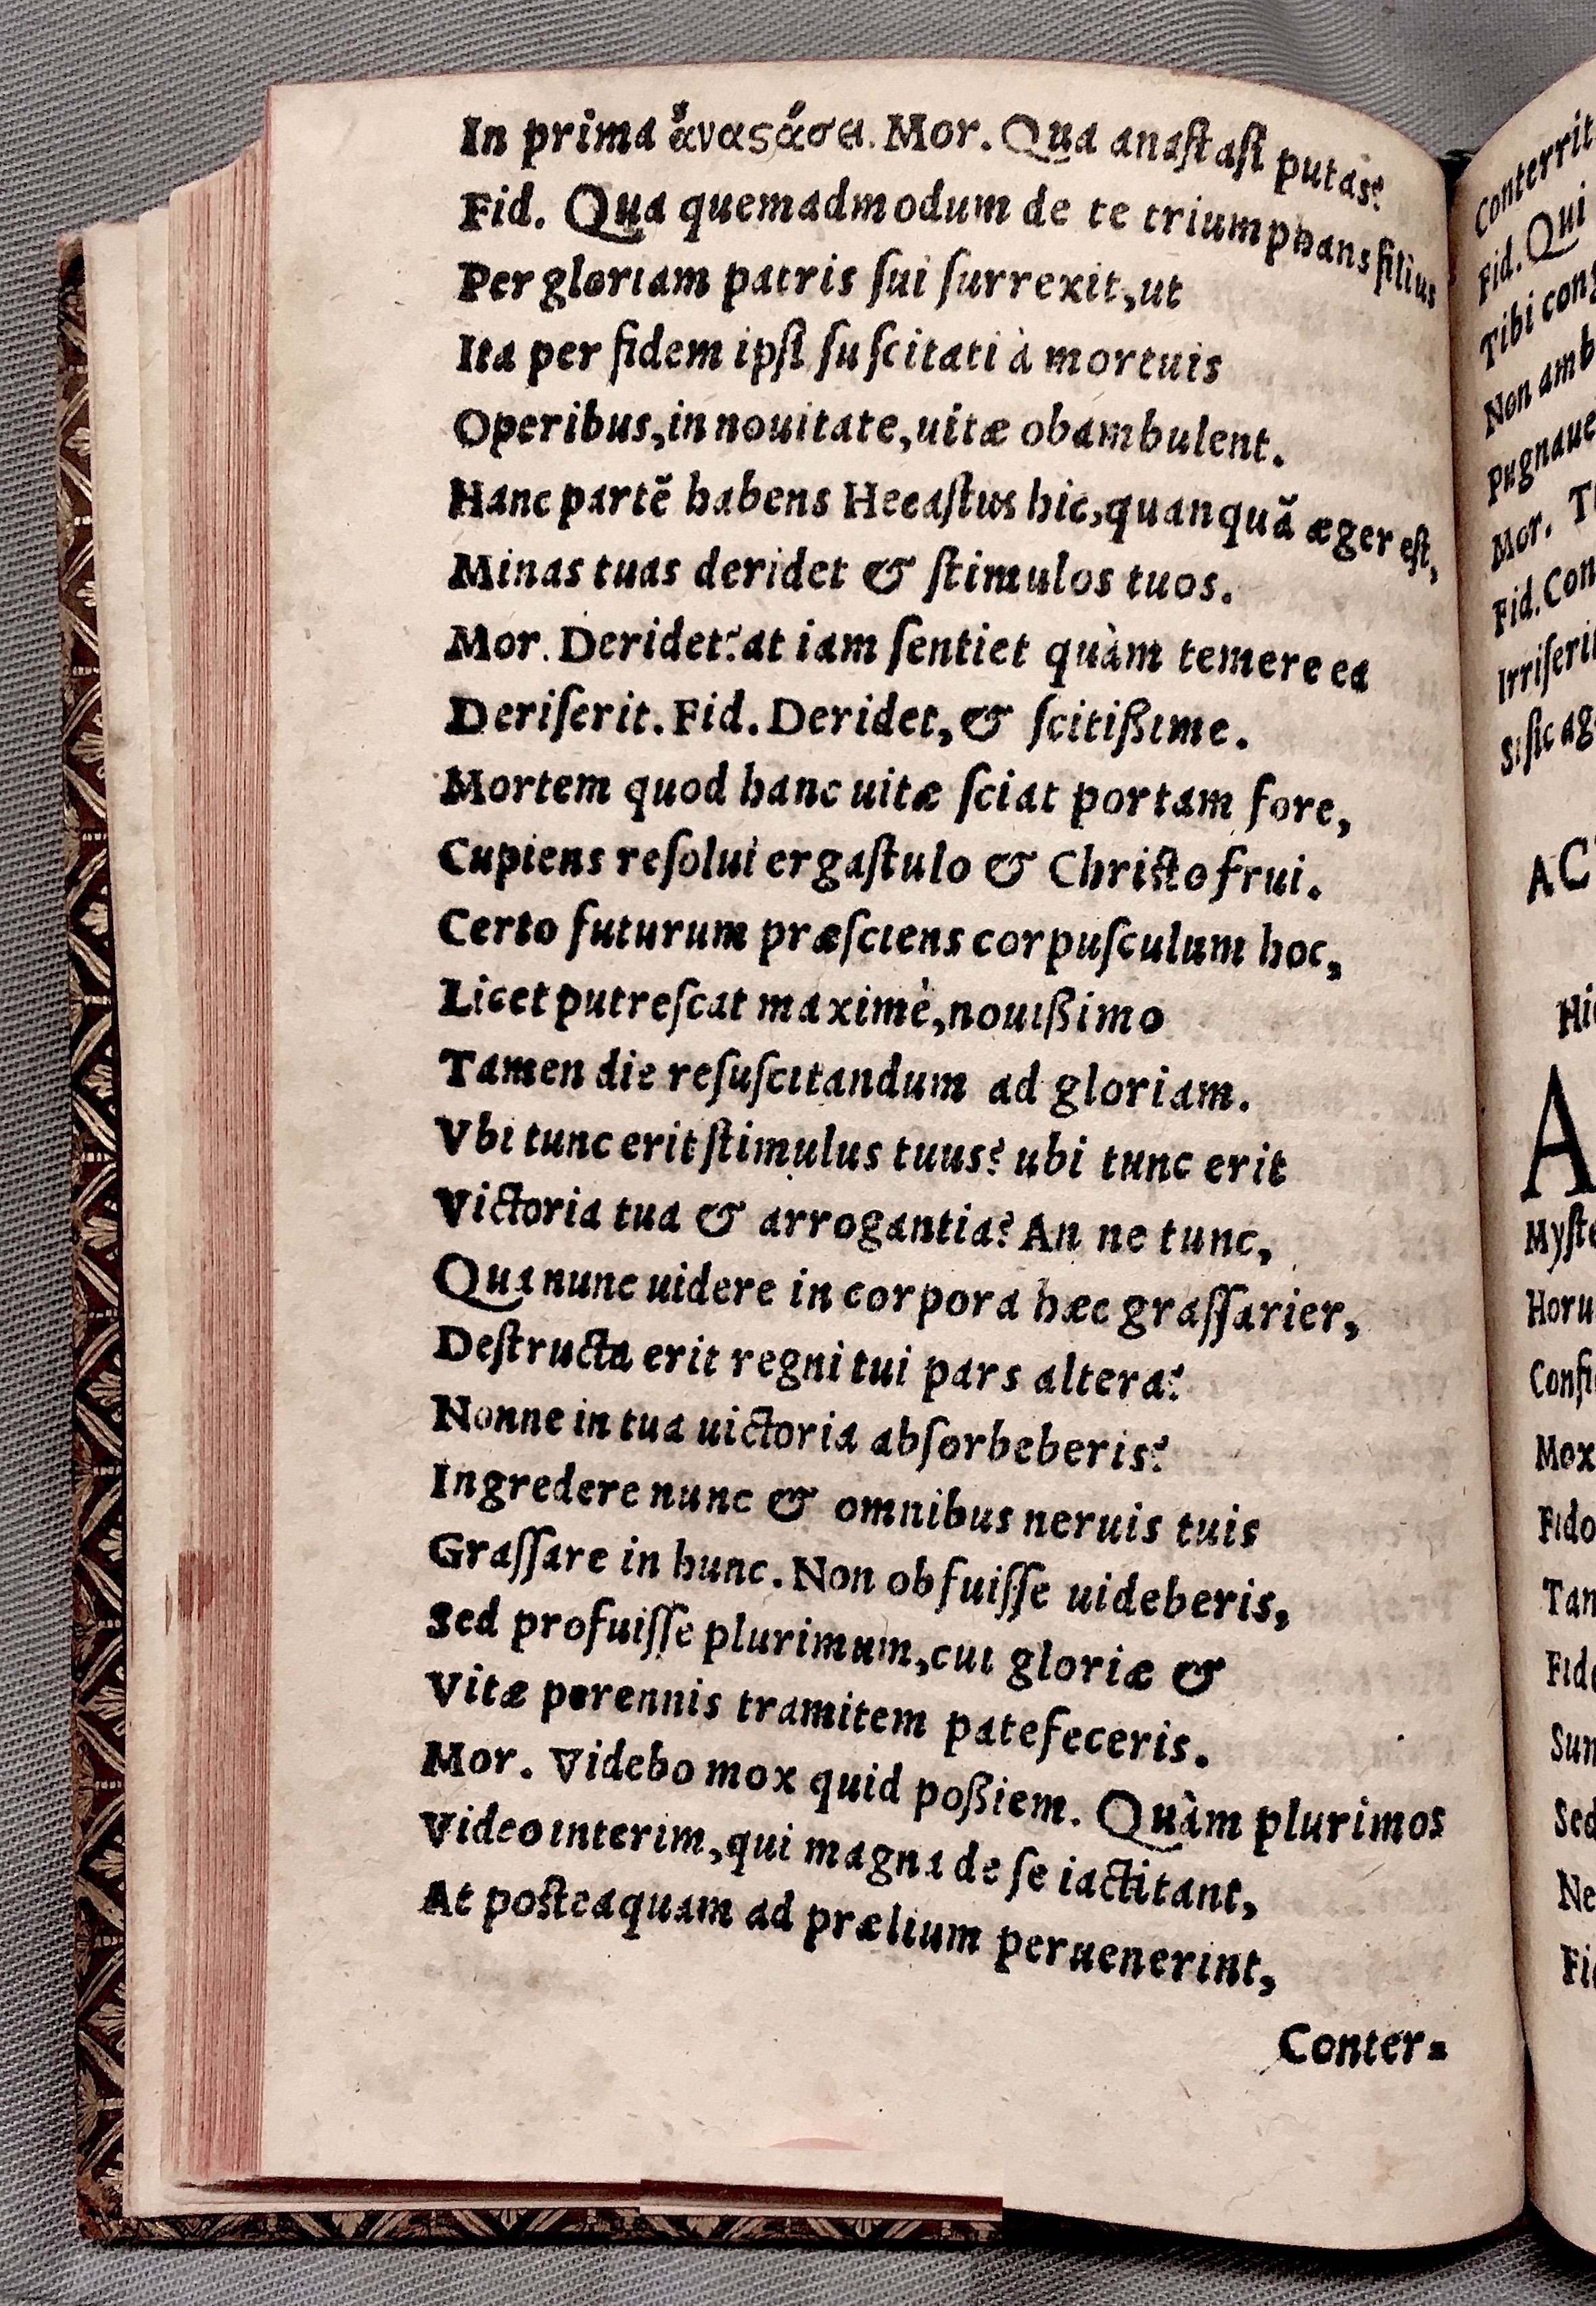 In prima ἀναςάσει. Mor. Qua anaſtaſi putas?
Fid. Qua quemadmodum de te triumphans filius
Per gloriam patris ſui ſurrexit, ut
Ita per fidem ipſi ſuſcitati à mortuis
Operibus, in nouitate, uitæ obambulent.
Hanc partẽ habens Hecaſtus hic, quanquã æger eſt,
Minas tuas deridet & ſtimulos tuos.
Mor. Deridet? at iam ſentiet quàm temere ea
Deriſerit. Fid. Deridet, & ſcitißime.
Mortem quod hanc uitæ ſciat portam fore,
Cupiens reſolui ergaſtulo & Chriſto frui.
Certo futurum præſciens corpuſculum hoc,
Licet putreſcat maximè, nouißimo
Tamen die reſuſcitandum ad gloriam.
Vbi tunc erit ſtimulus tuus? ubi tunc erit
Victoria tua & arrogantia? An ne tunc,
Qua nunc uidere in corpora hæc graſſarier,
Deſtructa erit regni tui pars altera?
Nonne in tua uictoria abſorbeberis?
Ingredere nunc & omnibus neruis tuis
Graſſare in hunc. Non obfuiſſe uideberis,
Sed profuiſſe plurimum, cui gloriæ &
Vitæ perennis tramitem patefeceris.
Mor. Videbo mox quid poßiem. Quàm plurimos
Video interim, qui magna de ſe iactitant,
At poſteaquam ad prælium peruenerint,
Conter-
Conterrit
Fid. Qui
Tibi cong
Non amb
Pugnaue
Mor. T
Fid. Con
Irriſerit
Si ſic ag
AC
Hi
A
Myſte
Horu
Confi
Mox
Fido
Tan
Fid
Sun
Sed
Ne
Fi